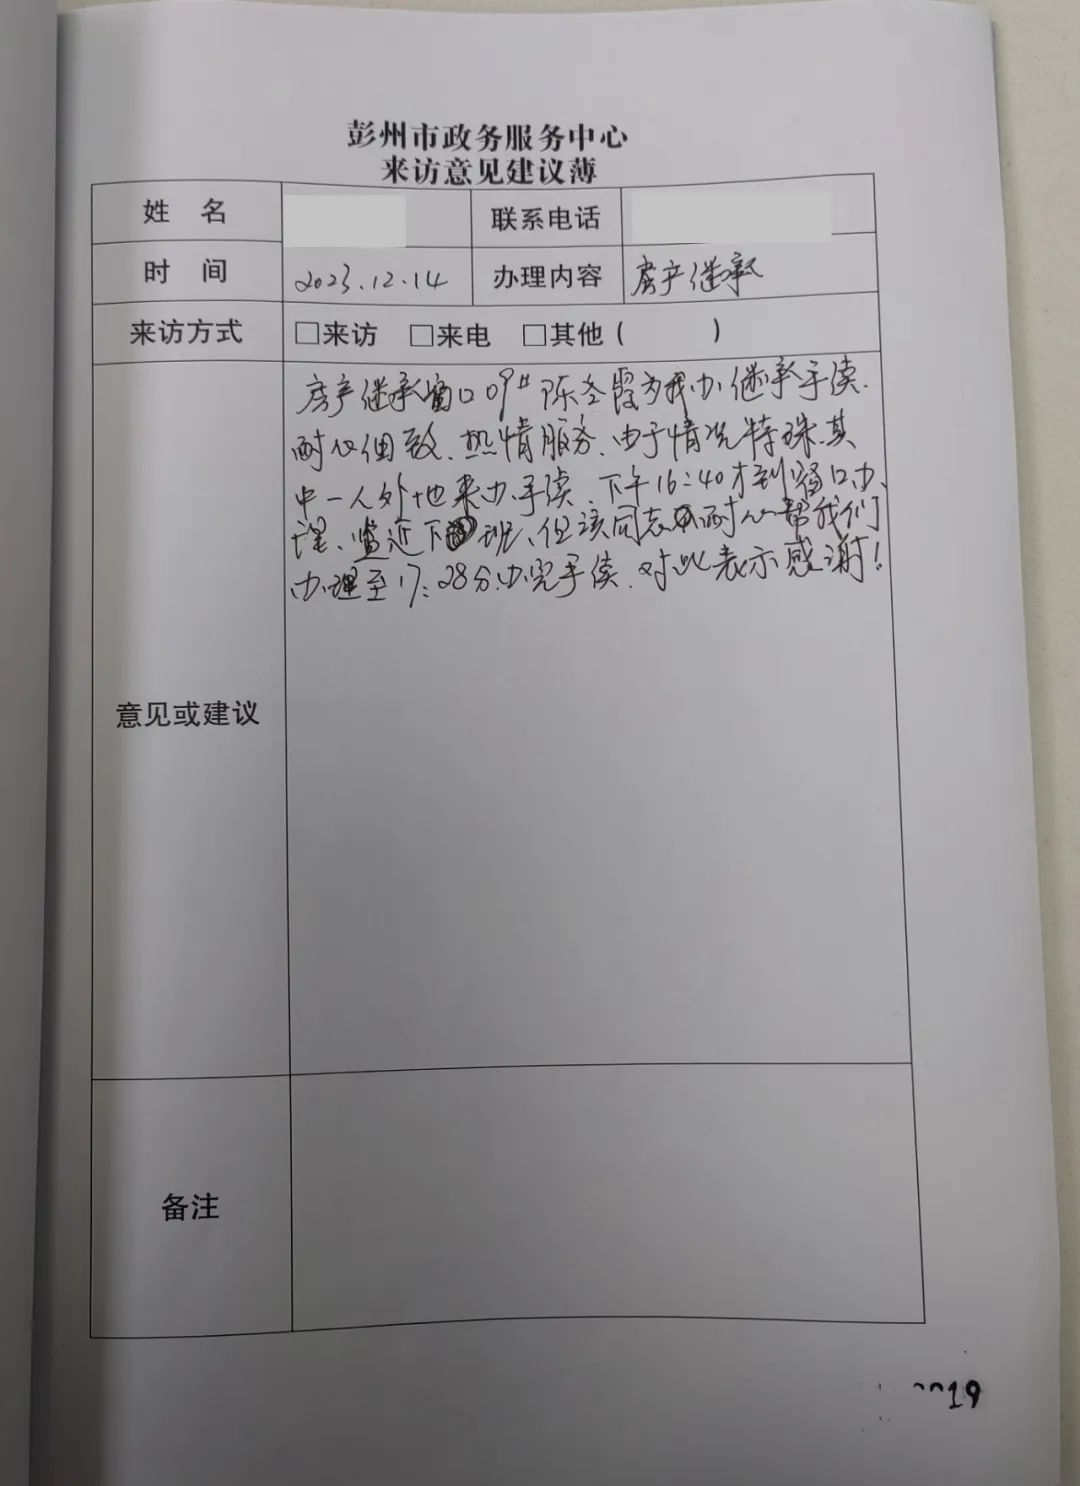 彭州市政务服务中心
来访意见建议薄
姓 名
联系电话
时 间
2023.12.14
办理内容
房产继承
来访方式
□来访 □来电 □其他( )
意见或建议
房产继承窗口09# 陈冬霞为我办继承手续.
耐心细致、热情服务.由于情况特殊.其
中一人外地来办手续.下午16:40才到窗口办
理、临近下班、但该同志耐心帮我们
办理至17:28分办完手续.对此表示感谢!
备注
19